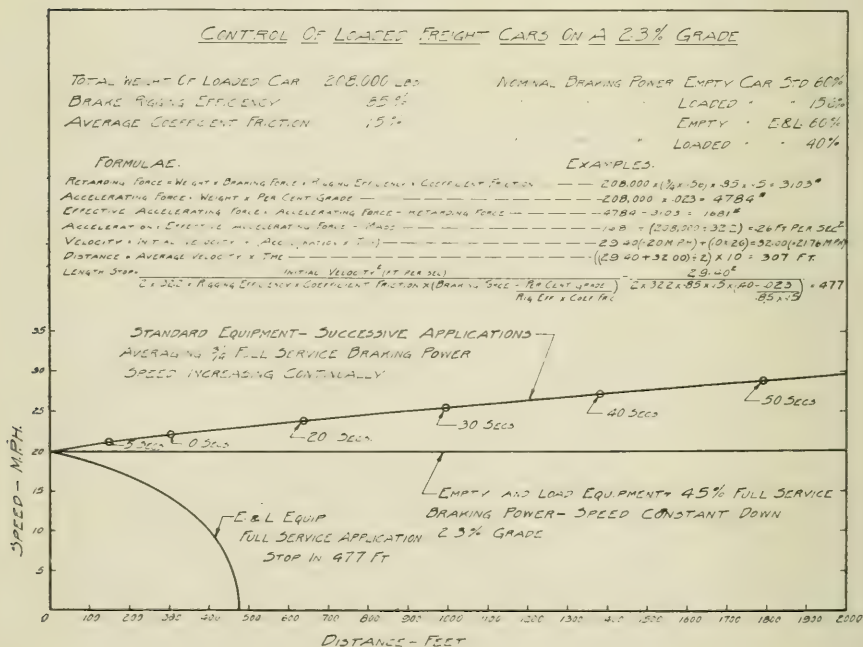 CONTROL OF LOADED FREIGHT CARS ON A 2.3% GRADE
TOTAL WEIGHT OF LOADED CAR 208.000 LBS
BRAKE RIGGING EFFICIENCY 85%
AVERAGE COEFFICIENT FRICTION 15%
NOMINAL BRAKING POWER EMPTY CAR STD 60%
LOADED " "
EMPTY " E&L 60%
LOADED " " 40%
FORMULAE.
EXAMPLES.
RETARDING FORCE = WEIGHT × BRAKING FORCE × RIGGING EFFICIENCY × COEFFICIENT FRICTION = 3103#
ACCELERATING FORCE = WEIGHT × PER CENT GRADE — 208,000 × .023 = 4784#
EFFECTIVE ACCELERATING FORCE = ACCELERATING FORCE - RETARDING FORCE — 4784 - 3103 = 1681#
ACCELERATION = EFFECTIVE ACCELERATING FORCE ÷ MASS — ÷ (208,000 ÷ 32.2) = .26 FT PER SEC²
VELOCITY = INITIAL VELOCITY + (ACCELERATION × TIME) — 29.40 (=20 M.P.H.) + (10 × .26) = 32.00 (=21.76 M.P.H.)
DISTANCE = AVERAGE VELOCITY × TIME — ((29.40 + 32.00) ÷ 2) × 10 = 307 FT.
LENGTH STOP = INITIAL VELOCITY² (FT PER SEC) 29.40²
2 × 32.2 × RIGGING EFFICIENCY × COEFFICIENT FRICTION × (BRAKING FORCE - PER CENT GRADE) 2 × 32.2 × .85 × .15 × (.40 - .023) = 477
RIG EFF × COEF FRIC .85 × .15
35
30
25
20
15
10
5
0
SPEED - M.P.H.
STANDARD EQUIPMENT - SUCCESSIVE APPLICATIONS
AVERAGING ¾ FULL SERVICE BRAKING POWER
SPEED INCREASING CONTINUALLY
5 SECS
10 SECS
20 SECS.
30 SECS
40 SECS
50 SECS
EMPTY AND LOAD EQUIPMENT - 45% FULL SERVICE
BRAKING POWER - SPEED CONSTANT DOWN
2.3% GRADE
E & L EQUIP
FULL SERVICE APPLICATION
STOP IN 477 FT
0 100 200 300 400 500 600 700 800 900 1000 1100 1200 1300 1400 1500 1600 1700 1800 1900 2000
DISTANCE - FEET